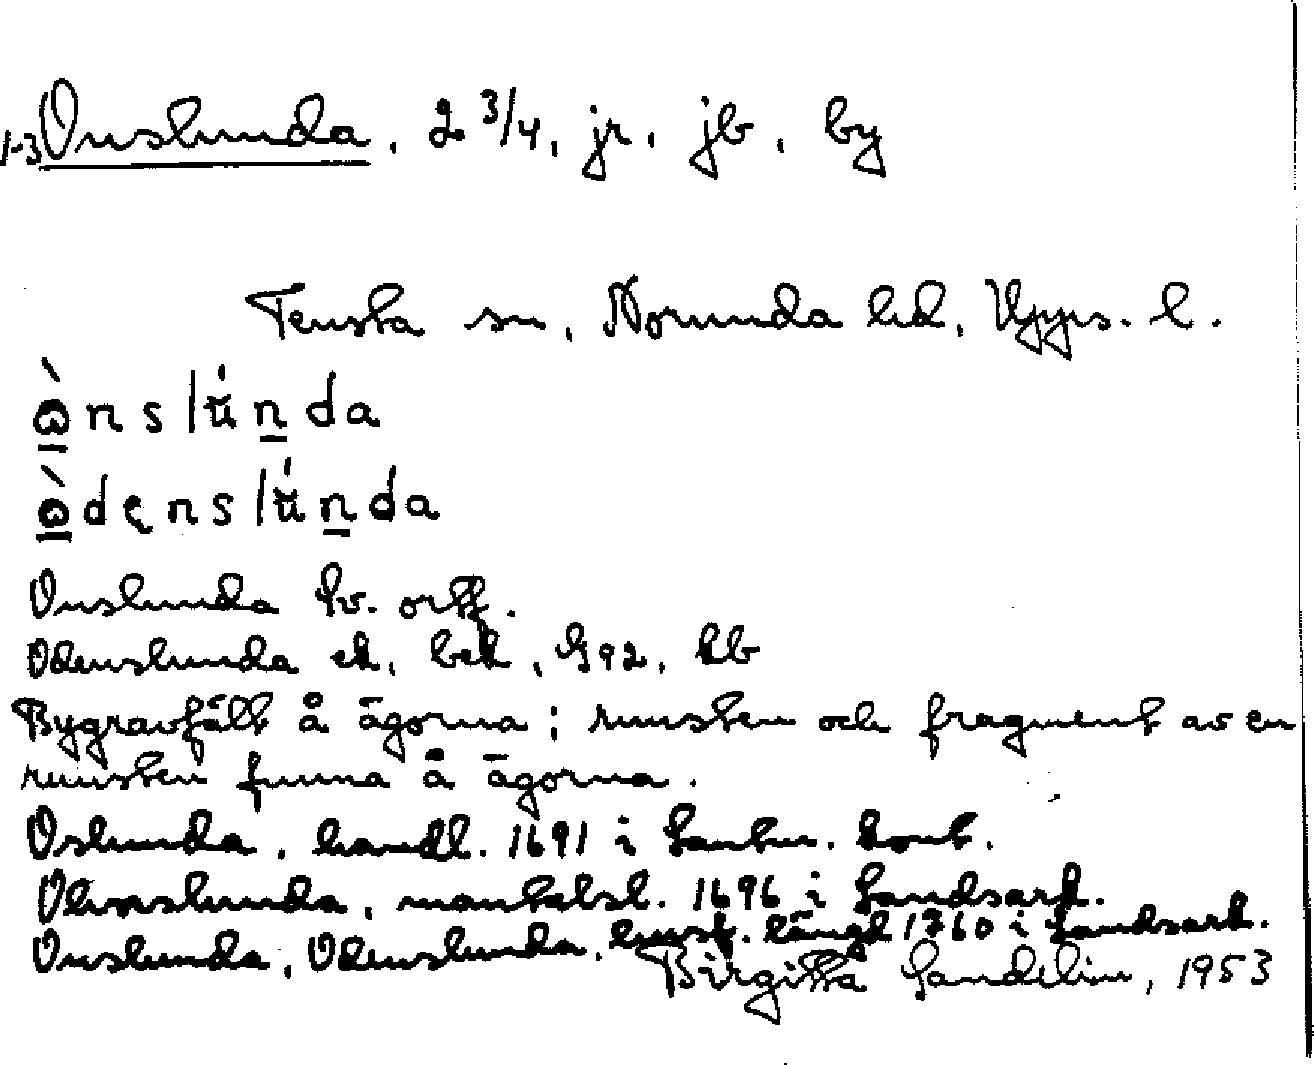 1-3 Onslunda, 2 3/4, jr, jb, by
Tensta sn, Norunda hd, Upps. l.
ὼnslu̇́nda
ὼdęnslu̇́nda
Onslunda kv. ortf.
Odenslunda ek, bek, G92, kb
Bygravfält å ägorna; runsten och fragment av en
runsten funna å ägorna.
Oslunda, handl. 1691 i Lantm. kont.
Olivnslunda, mantalsl. 1696 i Landsark.
Onslunda, Odenslunda, husf. längd 1760 i Landsark.
Birgitta Sandelin, 1953